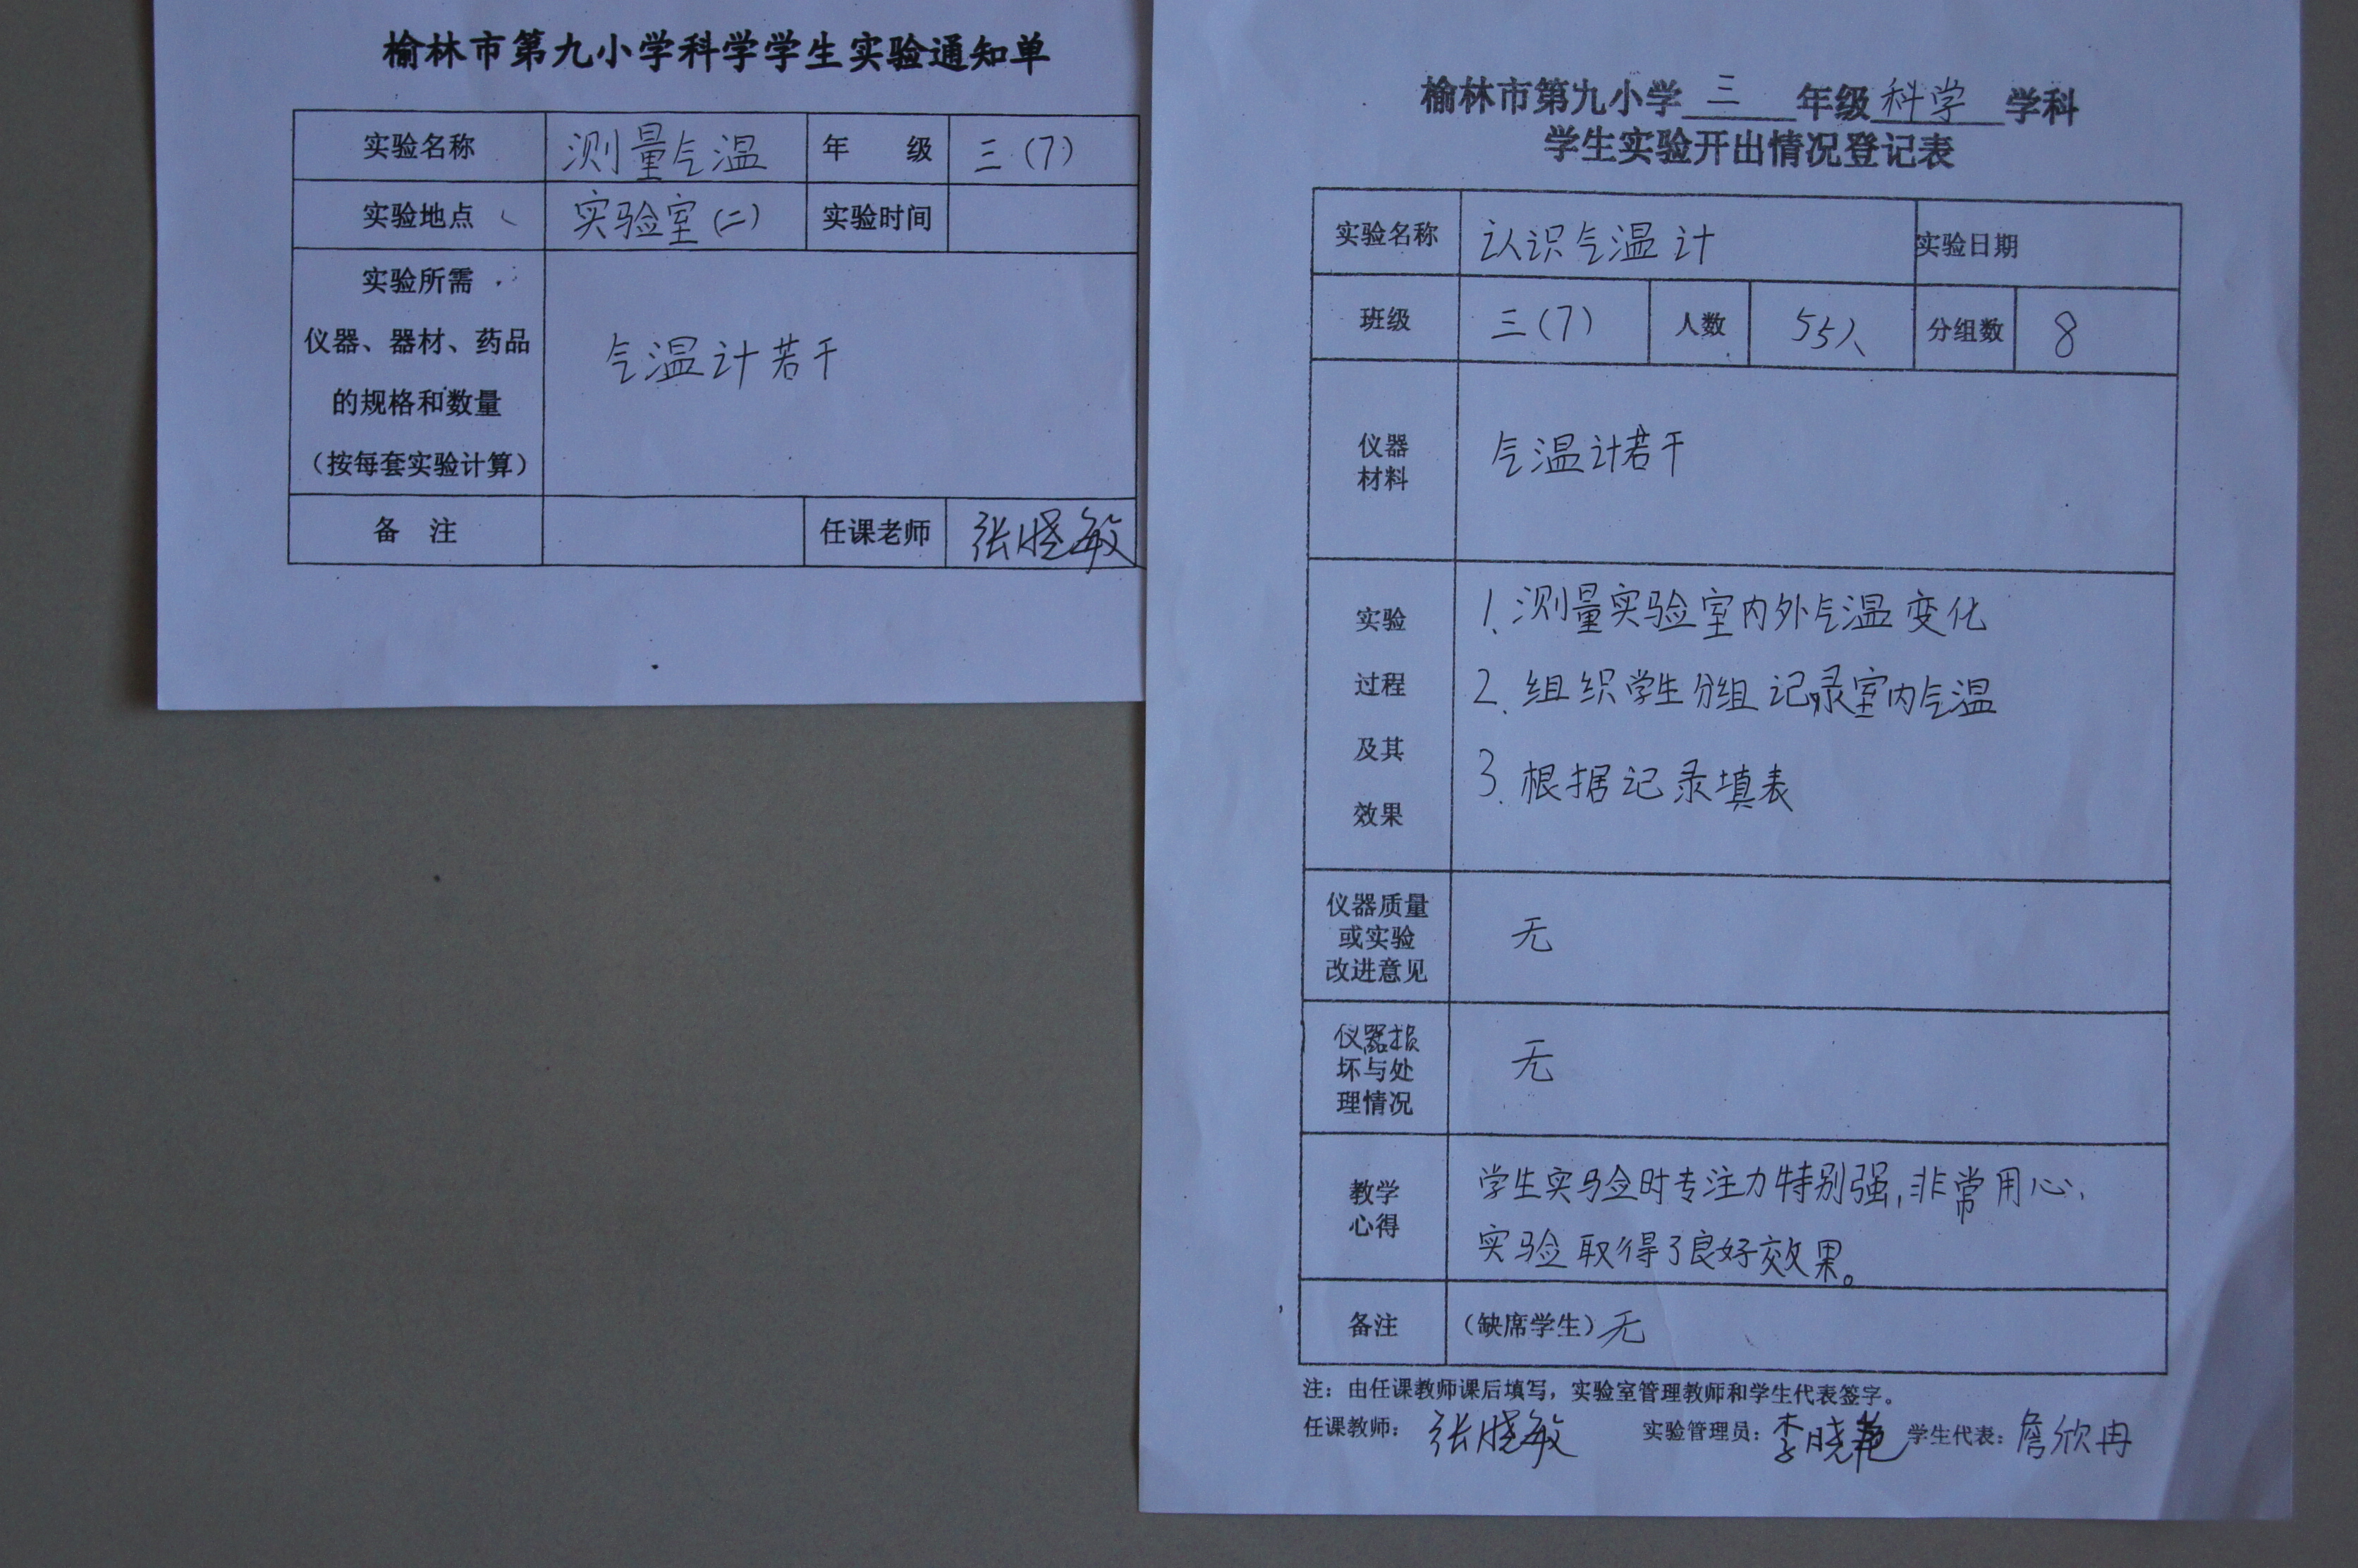 榆林市第九小学科学学生实验通知单
实验名称 测量气温 年 级 三(7)
实验地点 实验室(二) 实验时间
实验所需
仪器、器材、药品
的规格和数量
(按每套实验计算)
气温计若干
备 注 任课老师 张晓敏
榆林市第九小学 三 年级 科学 学科
学生实验开出情况登记表
实验名称 认识气温计 实验日期
班级 三(7) 人数 55人 分组数 8
仪器
材料
气温计若干
实验
过程
及其
效果
1. 测量实验室内外气温变化
2. 组织学生分组记录室内气温
3. 根据记录填表
仪器质量
或实验
改进意见
无
仪器损
坏与处
理情况
无
教学
心得
学生实验时专注力特别强,非常用心,
实验取得了良好效果。
备注 (缺席学生)无
注:由任课教师课后填写,实验室管理教师和学生代表签字。
任课教师: 张晓敏 实验管理员: 李晓艳 学生代表: 詹欣冉